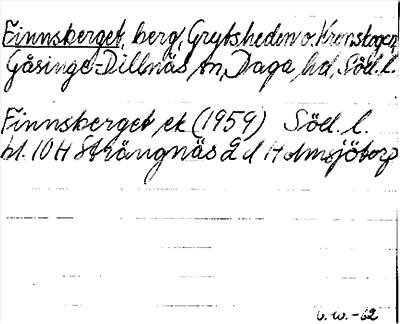 Finnsberget, berg, Grytsheden o. Kronskogen,
Gåsinge-Dillnäs sn, Daga hd, Söd. l.
Finnsberget ek (1959) Söd. l.
bl. 10H Strängnäs 2 d Holmsjötorp
-62